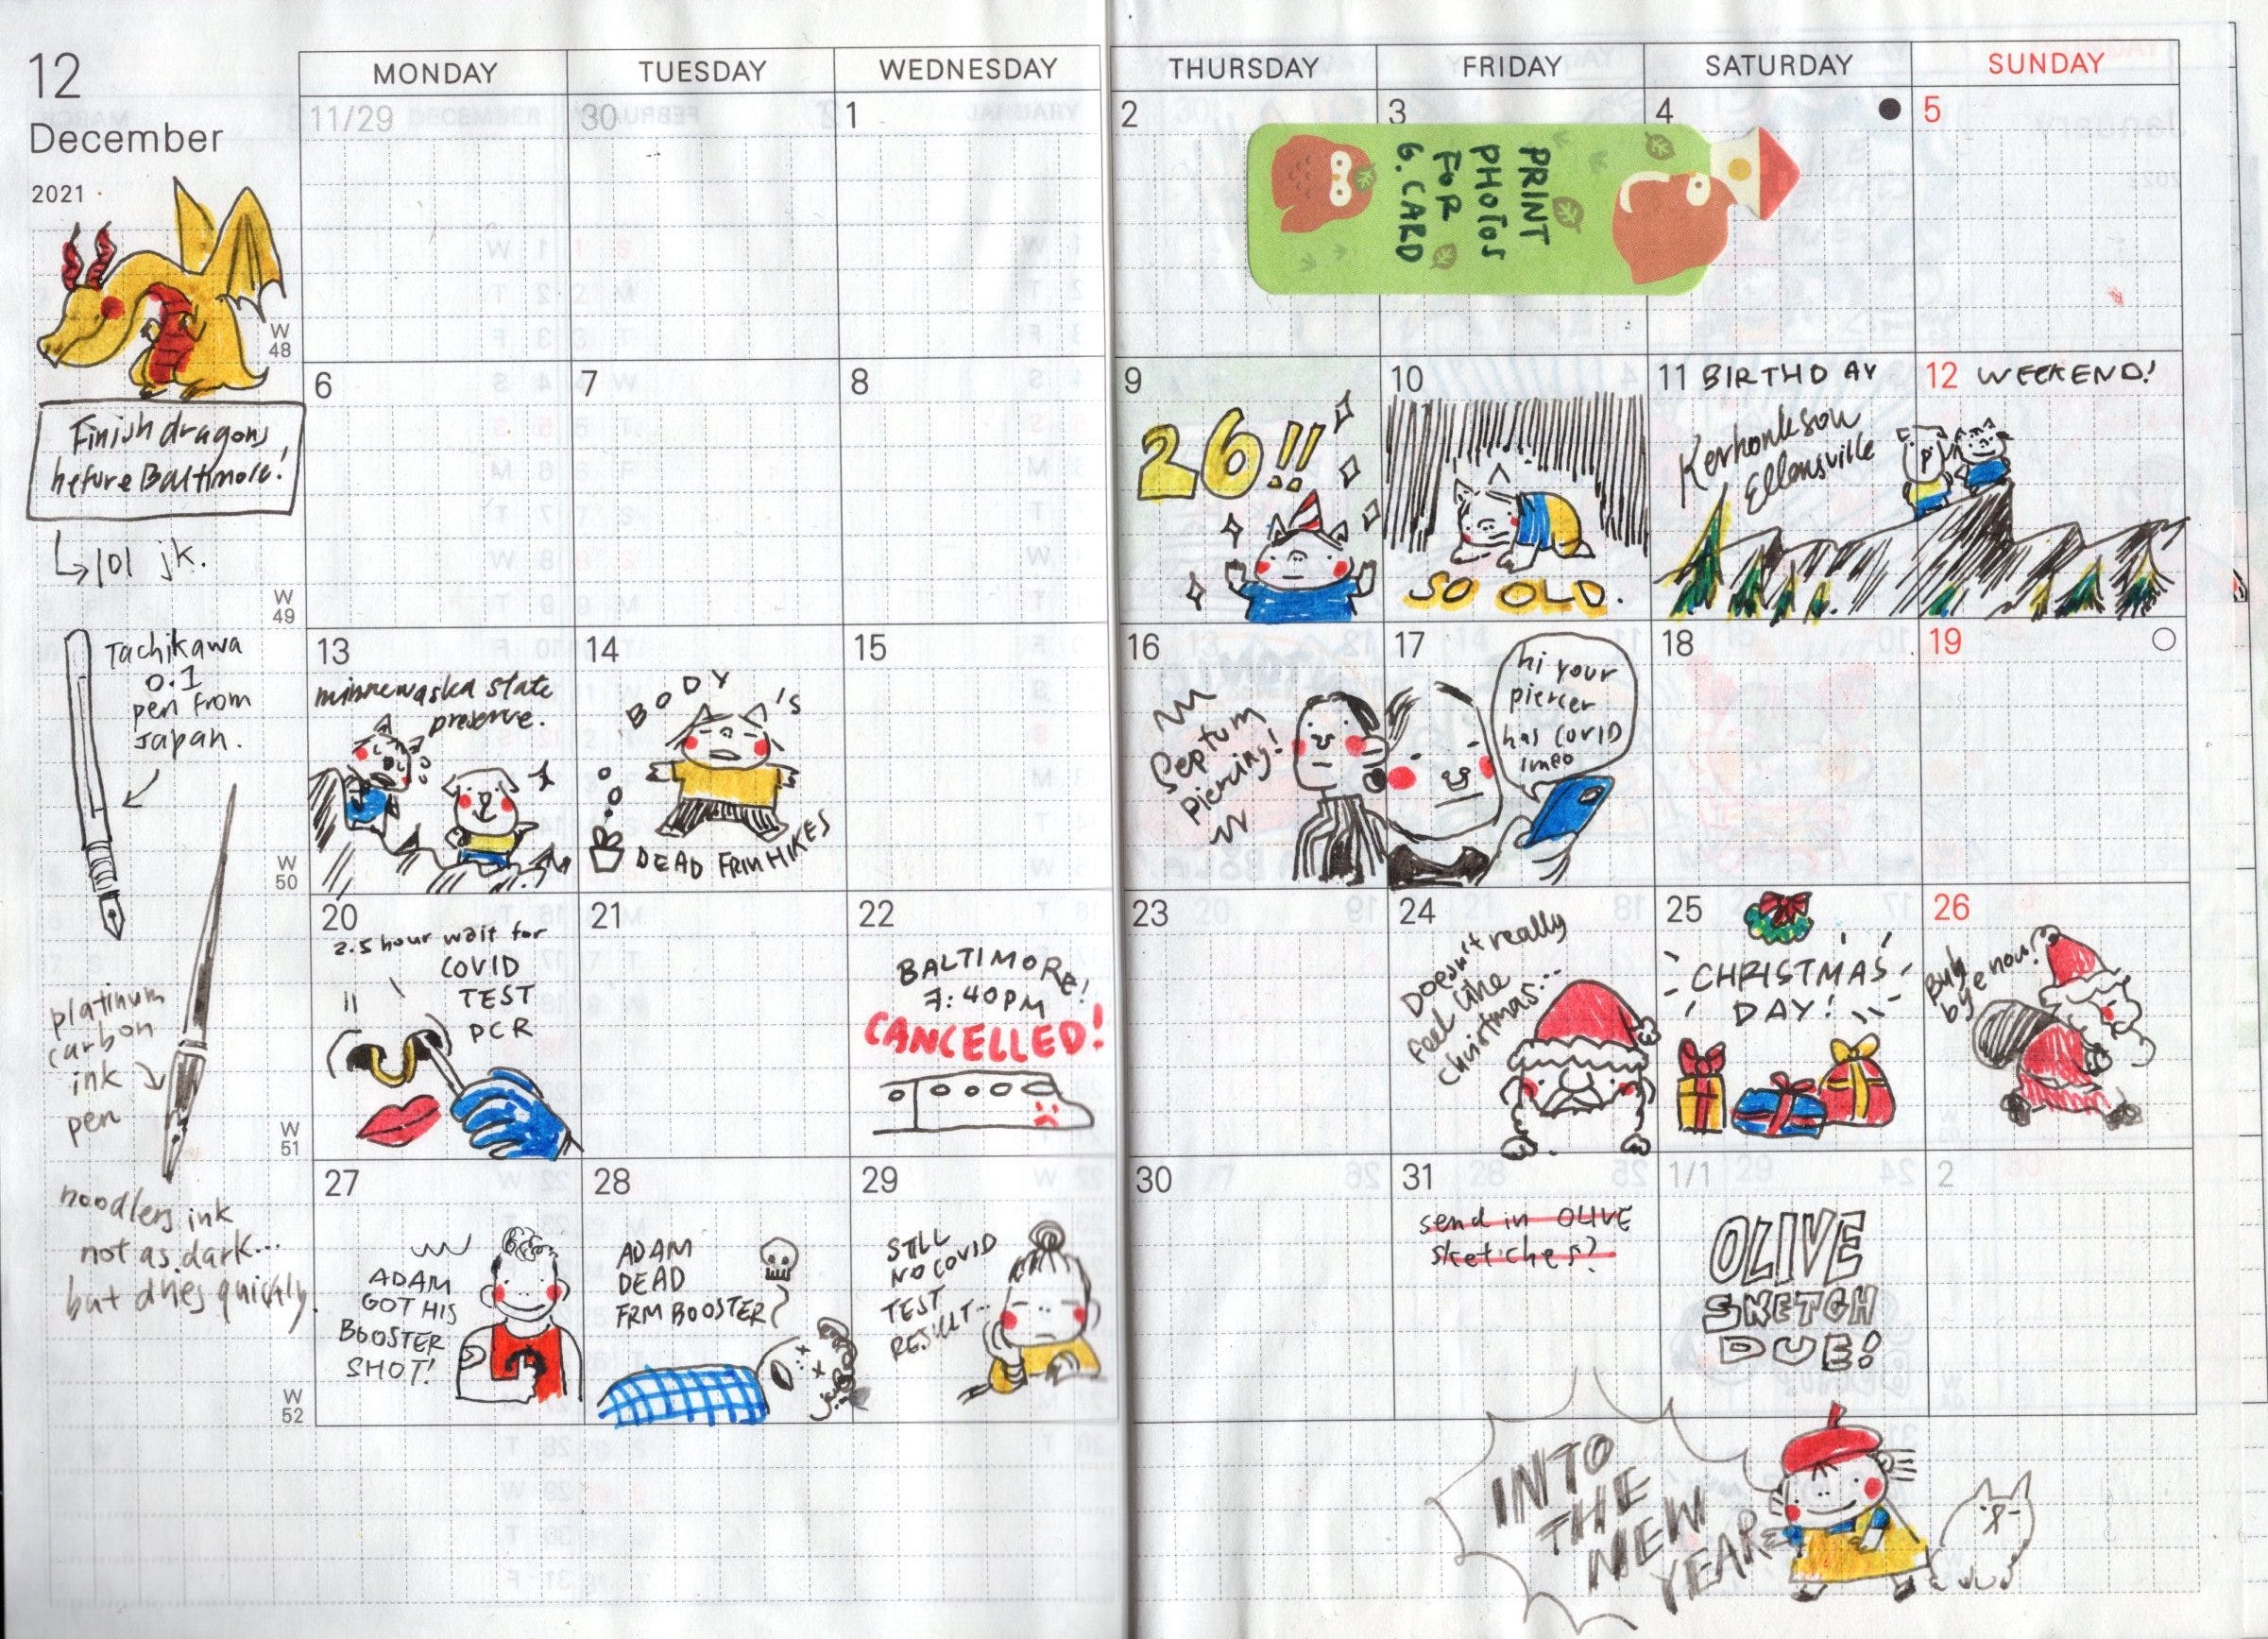 12
December
2021
MONDAY
TUESDAY
WEDNESDAY
THURSDAY
FRIDAY
SATURDAY
SUNDAY
11/29
30
1
2
3
4
5
PRINT
PHOTOS
FOR
G. CARD
W
48
Finish dragons
before Baltimore!
lol jk.
6
7
8
9
26!!
10
SO OLD.
11 BIRTHDAY
12 WEEKEND!
Kerhonkson
Ellensville
W
49
Tachikawa
0.1
pen from
Japan.
13
minnewaska state
preserve.
14
BODY'S
DEAD FRM HIKES
15
16
Septum
piercing!
17
hi your
piercer
has covid
lmao
18
19
W
50
platinum
carbon
ink
pen
20
2.5 hour wait for
COVID
TEST
PCR
21
22
BALTIMORE!
7:40PM
CANCELLED!
23
24
Doesn't really
feel like
christmas...
25
CHRISTMAS
DAY!
26
Buh
bye now!
W
51
noodlers ink
not as dark...
but dries quickly
27
ADAM
GOT HIS
BOOSTER
SHOT!
28
ADAM
DEAD
FRM BOOSTER
29
STILL
NO COVID
TEST
RESULT...
30
31
send in OLIVE
sketches?
1/1
OLIVE
SKETCH
DUE!
2
W
52
INTO
THE
NEW
YEAR